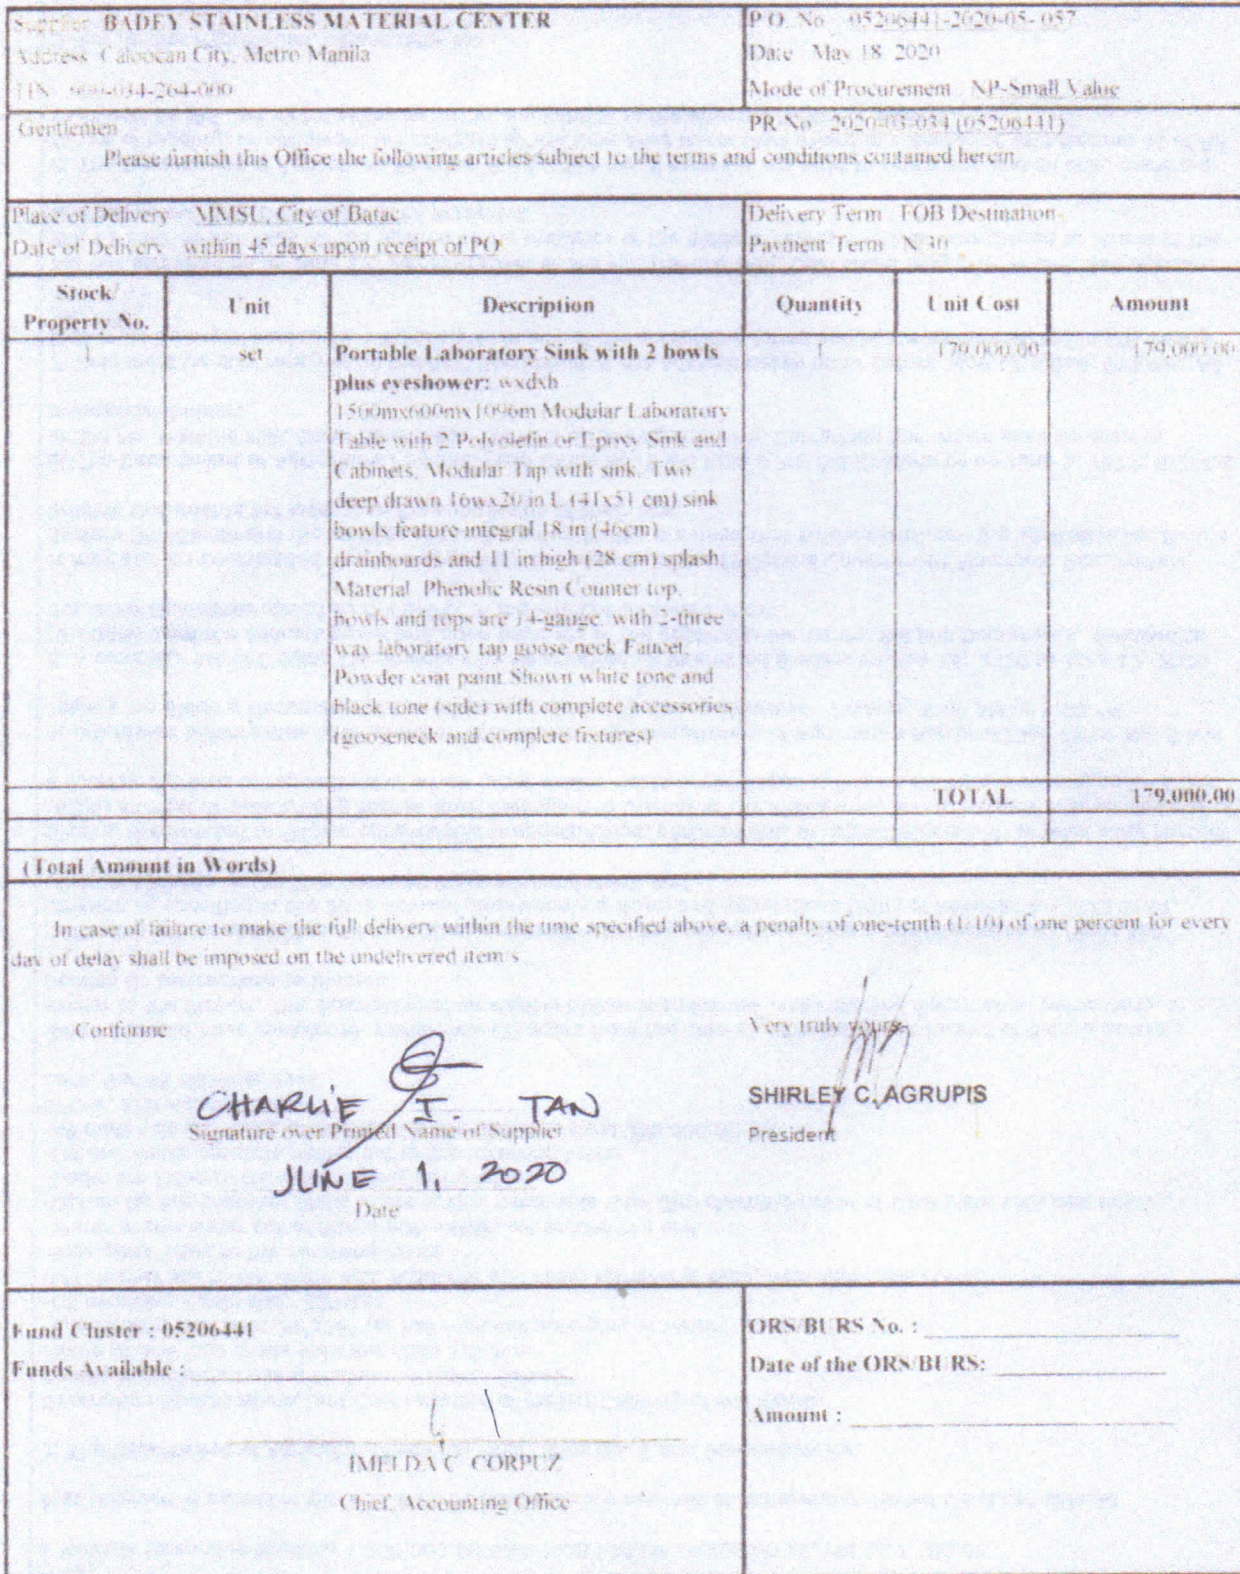 Supplier BADEY STAINLESS MATERIAL CENTER
Address Caloocan City, Metro Manila
TIN 900-034-264-000
P.O. No. 05206441-2020-05- 057
Date May 18, 2020
Mode of Procurement NP-Small Value
PR No 2020-03-034 (05206441)
Gentlemen
Please furnish this Office the following articles subject to the terms and conditions contained herein
Place of Delivery MMSU, City of Batac
Date of Delivery within 45 days upon receipt of PO
Delivery Term FOB Destination
Payment Term N 30
Stock/ Property No. Unit Description Quantity Unit Cost Amount
1 set Portable Laboratory Sink with 2 bowls 1 179,000.00 179,000.00
plus eyeshower: wxdxh
1500mx600mx1096m Modular Laboratory
Table with 2 Polyolefin or Epoxy Sink and
Cabinets, Modular Tap with sink, Two
deep drawn 16wx20 in L (41x51 cm) sink
bowls feature integral 18 in (46cm)
drainboards and 11 in high (28 cm) splash
Material Phenolic Resin Counter top,
bowls and tops are 14-gauge, with 2-three
way laboratory tap goose neck Faucet,
Powder coat paint Shown white tone and
black tone (side) with complete accessories
(gooseneck and complete fixtures)
TOTAL 179,000.00
(Total Amount in Words)
In case of failure to make the full delivery within the time specified above, a penalty of one-tenth (1/10) of one percent for every
day of delay shall be imposed on the undelivered item s
Conforme
Very truly yours,
CHARLIE T. TAN
Signature over Printed Name of Supplier
JUNE 1, 2020
Date
SHIRLEY C. AGRUPIS
President
Fund Cluster : 05206441
Funds Available :
IMELDA C CORPUZ
Chief, Accounting Office
ORS/BURS No. :
Date of the ORS/BURS:
Amount :